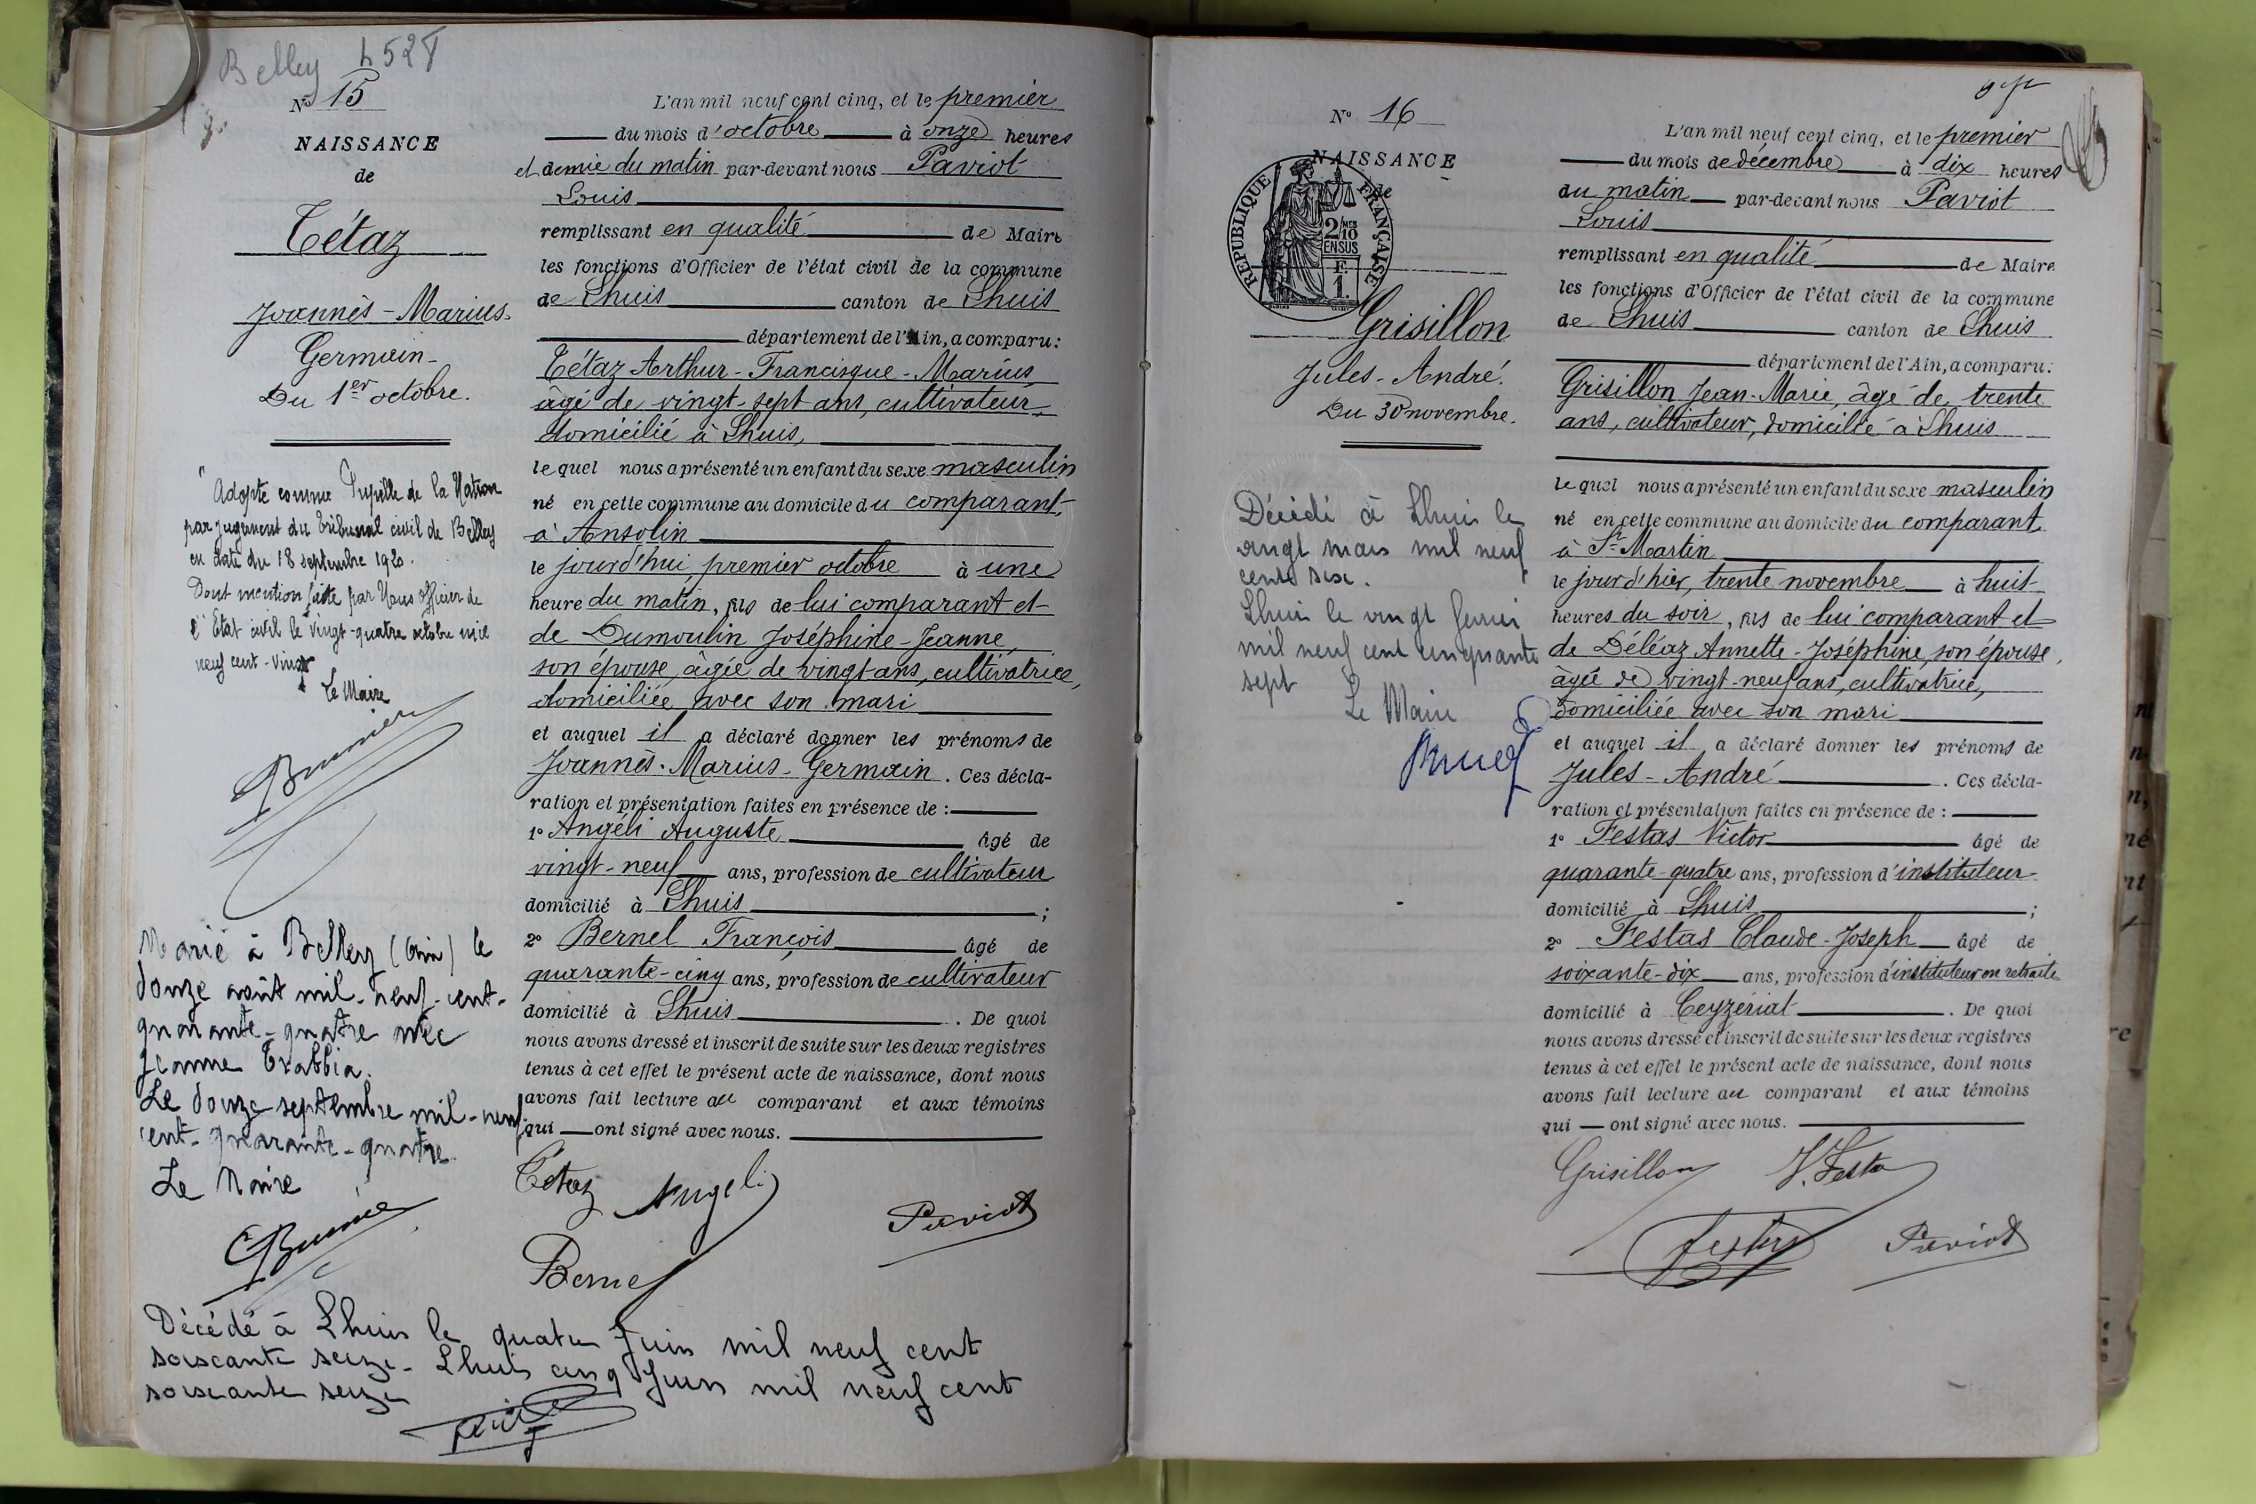 Belley
N° 15
NAISSANCE
de
Tétaz
Joannès - Marius -
Germain -
Du 1er octobre.
"Adopté comme Pupille de la Nation
par jugement du Tribunal civil de Belley
en date du 18 septembre 1920.
Dont mention faite par Nous officier de
l'Etat civil le vingt-quatre octobre mil
neuf cent-vingt
Le Maire
Marié à Belley (Ain) le
douze août mil-neuf-cent-
quarante-quatre avec
Jeanne Trabbia.
Le douze septembre mil-neuf
cent-quarante-quatre
Le Maire
L'an mil neuf cent cinq, et le premier
du mois d'octobre à onze heures
et demie du matin par-devant nous Paviot
Louis
remplissant en qualité de Maire
les fonctions d'Officier de l'état civil de la commune
de Lhuis canton de Lhuis
département de l'Ain, a comparu:
Tétaz Arthur - Francisque - Marius
âgé de vingt-sept ans, cultivateur,
domicilié à Lhuis,
lequel nous a présenté un enfant du sexe masculin
né en cette commune au domicile du comparant,
à Ansolin
le jourd'hui premier octobre à une
heure du matin, fils de lui comparant et
de Dumoulin Joséphine-Jeanne,
son épouse, âgée de vingt ans, cultivatrice,
domiciliée avec son mari
et auquel il a déclaré donner les prénoms de
Joannès - Marius - Germain. Ces décla-
ration et présentation faites en présence de :
1° Angéli Auguste âgé de
vingt-neuf ans, profession de cultivateur
domicilié à Lhuis ;
2° Bernel François âgé de
quarante-cinq ans, profession de cultivateur
domicilié à Lhuis. De quoi
nous avons dressé et inscrit de suite sur les deux registres
tenus à cet effet le présent acte de naissance, dont nous
avons fait lecture au comparant et aux témoins
qui ont signé avec nous.
Tétaz Angeli
Paviot
Bernel
Décédé à Lhuis le quatre Juin mil neuf cent
soixante seize - Lhuis cinq Juin mil neuf cent
soixante seize
N° 16
NAISSANCE
de
REPUBLIQUE FRANÇAISE
2/10 MES
EN SUS
F.
1.
Grisillon
Jules - André.
Du 30 novembre.
Décédé à Lhuis le
vingt mars mil neuf
cent six.
Lhuis le vingt
mil neuf cent cinquante
sept
Le Maire
L'an mil neuf cent cinq, et le premier
du mois de décembre à dix heures
du matin par-devant nous Paviot
Louis
remplissant en qualité de Maire
les fonctions d'Officier de l'état civil de la commune
de Lhuis canton de Lhuis
département de l'Ain, a comparu:
Grisillon Jean-Marie, âgé de trente
ans, cultivateur, domicilié à Lhuis
lequel nous a présenté un enfant du sexe masculin
né en cette commune au domicile du comparant
à St-Martin
le jour d'hier, trente novembre à huit
heures du soir, fils de lui comparant et
de Déléaz Annette-Joséphine, son épouse,
âgée de vingt-neuf ans, cultivatrice,
domiciliée avec son mari
et auquel il a déclaré donner les prénoms de
Jules - André. Ces décla-
ration et présentation faites en présence de :
1° Festas Victor âgé de
quarante-quatre ans, profession d'instituteur
domicilié à Lhuis ;
2° Festas Claude-Joseph âgé de
soixante-dix ans, profession d'instituteur en retraite
domicilié à Ceyzériat. De quoi
nous avons dressé et inscrit de suite sur les deux registres
tenus à cet effet le présent acte de naissance, dont nous
avons fait lecture au comparant et aux témoins
qui ont signé avec nous.
Grisillon V. Festas
Festas Paviot